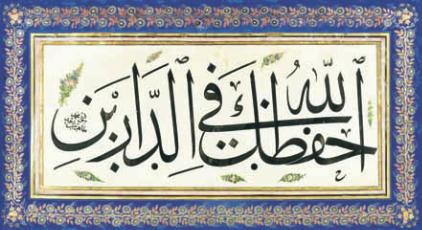 حفظك الله في الدارين